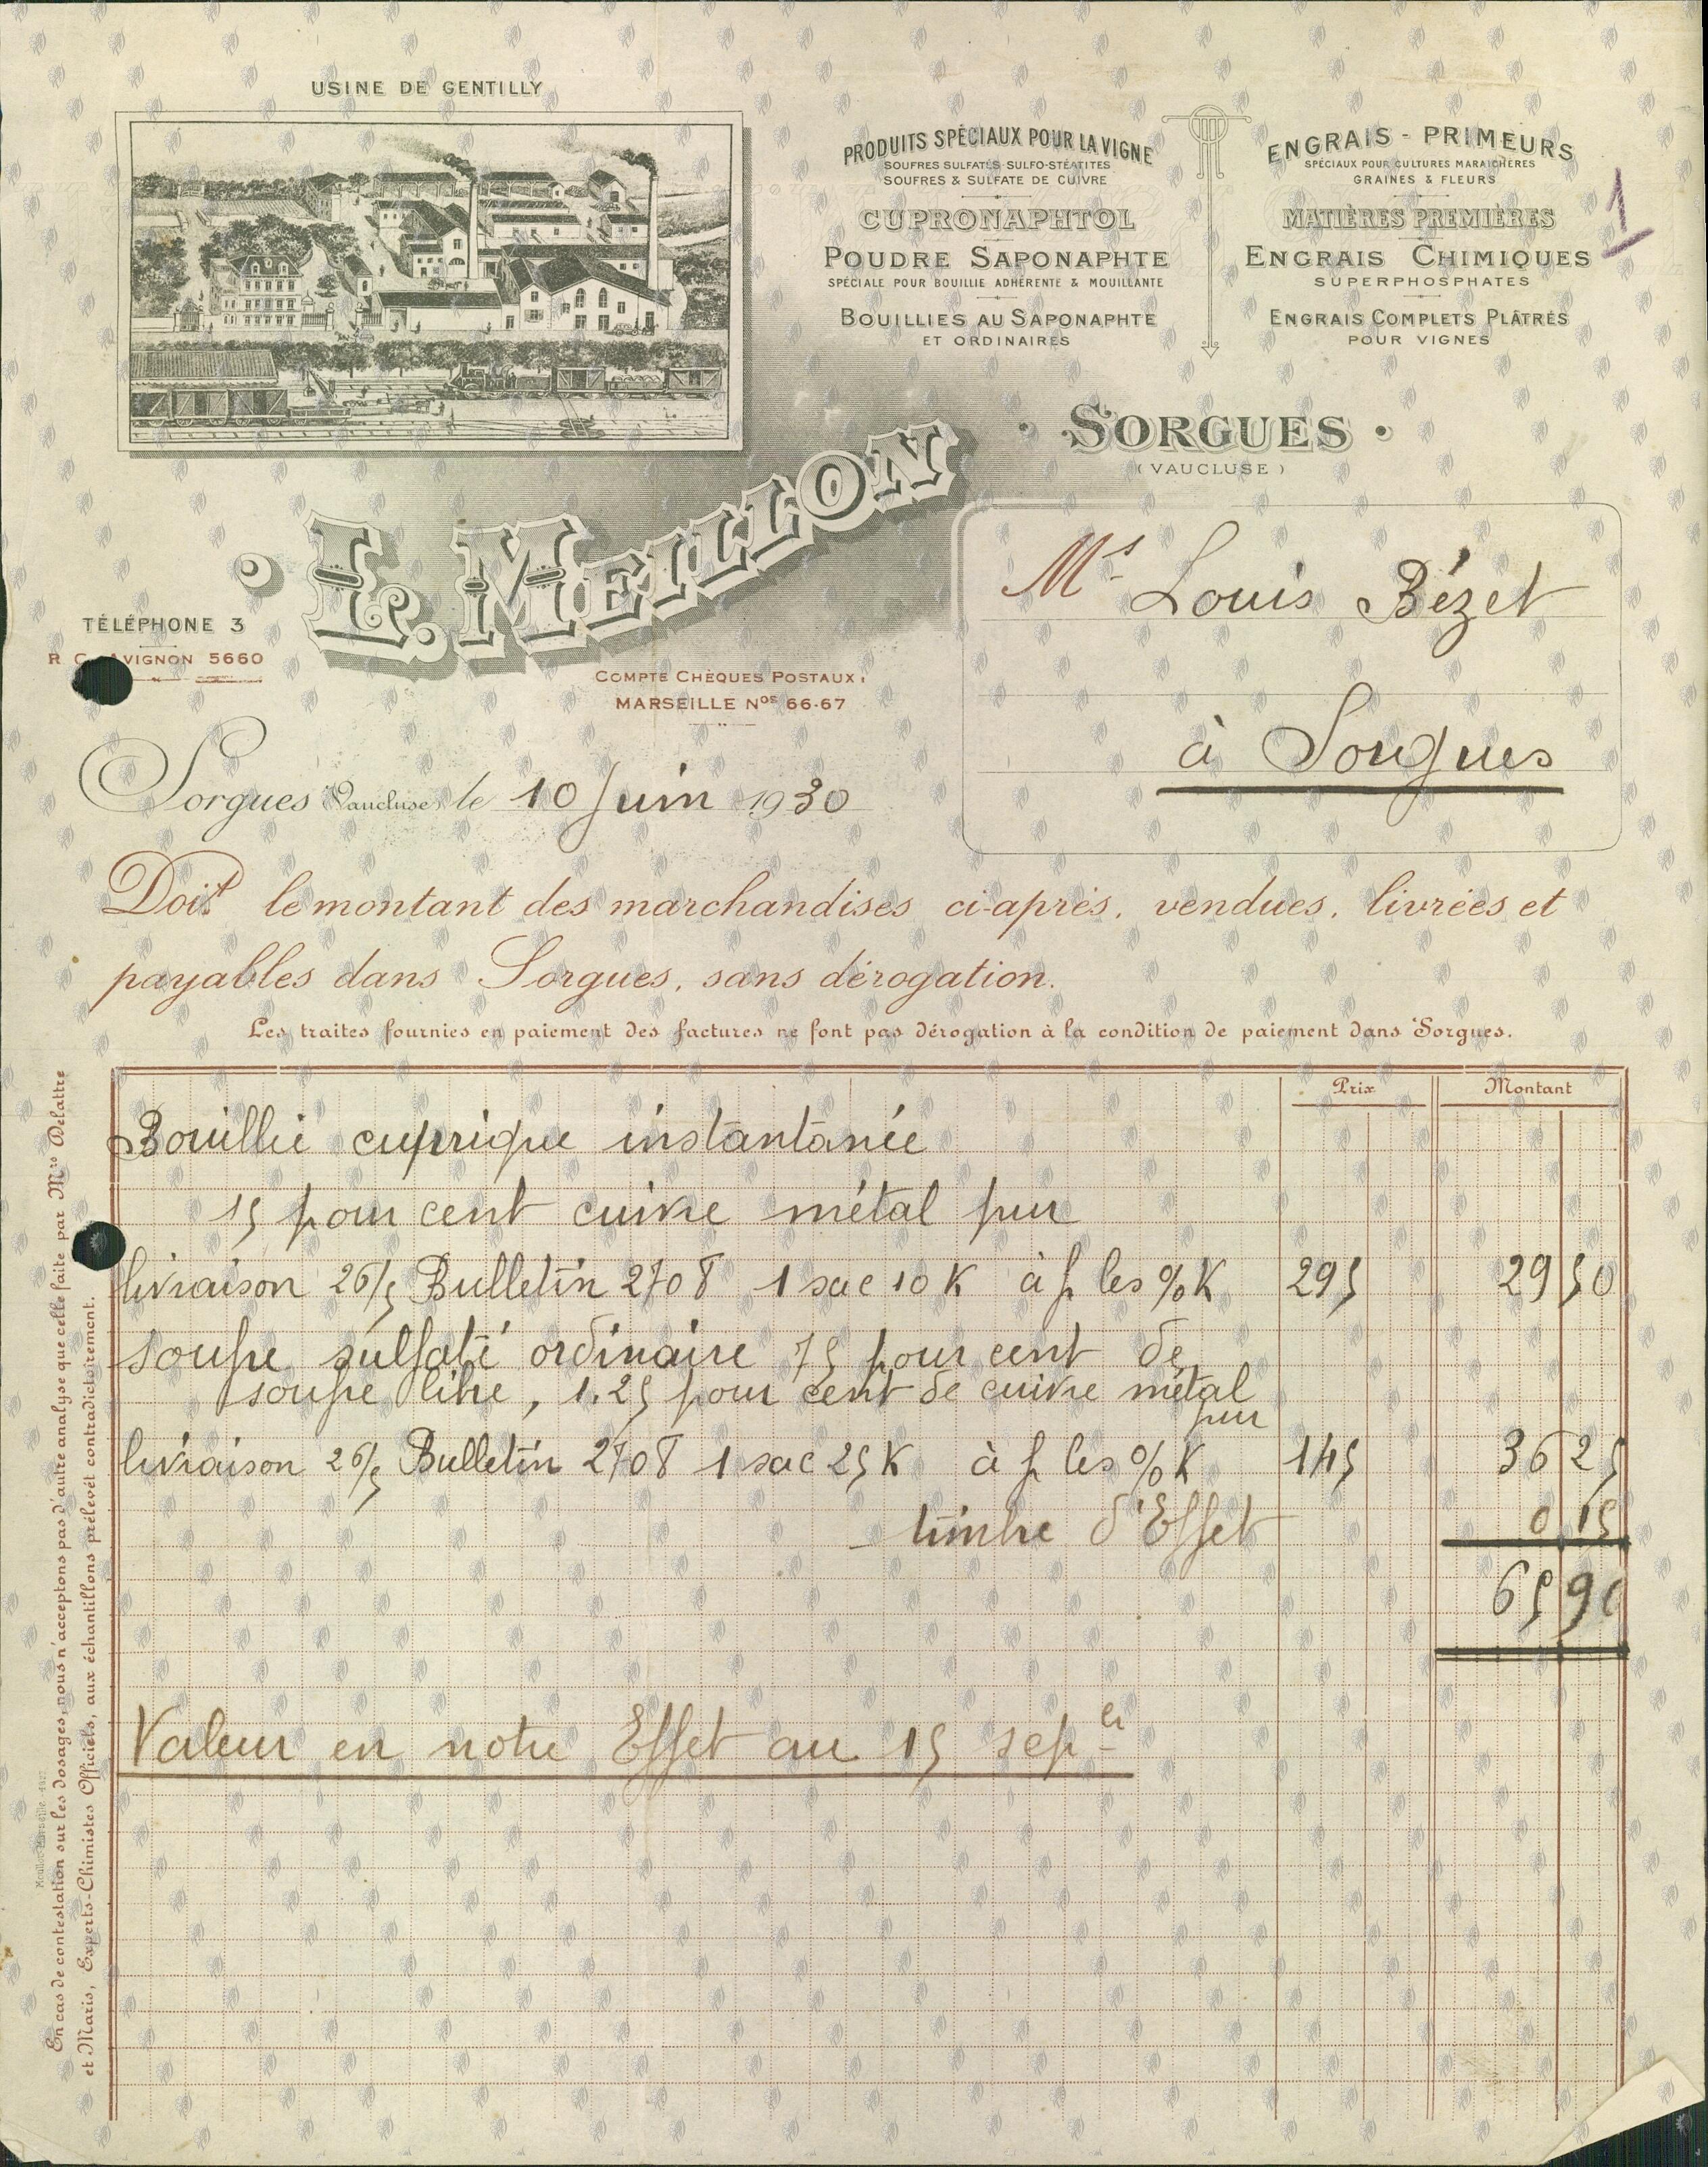 USINE DE GENTILLY
PRODUITS SPÉCIAUX POUR LA VIGNE
SOUFRES SULFATÉS-SULFO-STÉATITES
SOUFRES & SULFATE DE CUIVRE
CUPRONAPHTOL
POUDRE SAPONAPHTE
SPÉCIALE POUR BOUILLIE ADHÉRENTE & MOUILLANTE
BOUILLIES AU SAPONAPHTE
ET ORDINAIRES
ENGRAIS - PRIMEURS
SPÉCIAUX POUR CULTURES MARAICHÈRES
GRAINES & FLEURS
MATIÈRES PREMIÈRES
ENGRAIS CHIMIQUES
SUPERPHOSPHATES
ENGRAIS COMPLETS PLÂTRÉS
POUR VIGNES
1
SORGUES
(VAUCLUSE)
L. MEILLON
TÉLÉPHONE 3
R C AVIGNON 5660
COMPTE CHÈQUES POSTAUX:
MARSEILLE Nos 66-67
Mr Louis Bézet
à Sorgues
Sorgues (Vaucluse) le 10 Juin 1930
Doit le montant des marchandises ci-après, vendues, livrées et
payables dans Sorgues, sans dérogation.
Les traites fournies en paiement des factures ne font pas dérogation à la condition de paiement dans Sorgues.
Prix Montant
Bouillie cuprique instantanée
15 pour cent cuivre métal pur
livraison 26/5 Bulletin 2708 1 sac 10 K à f les % K 295 29 50
soufre sulfaté ordinaire 75 pour cent de
soufre libre, 1.25 pour cent de cuivre métal
pur
livraison 26/5 Bulletin 2708 1 sac 25 K à f les % K 145 36 25
timbre d'Effet 0 15
65 90
Valeur en notre Effet au 15 seper
En cas de contestation sur les dosages, nous n'acceptons pas d'autre analyse que celle faite par Mrs Delattre
et Maris, Experts-Chimistes Officiels, aux échantillons prélevés contradictoirement.